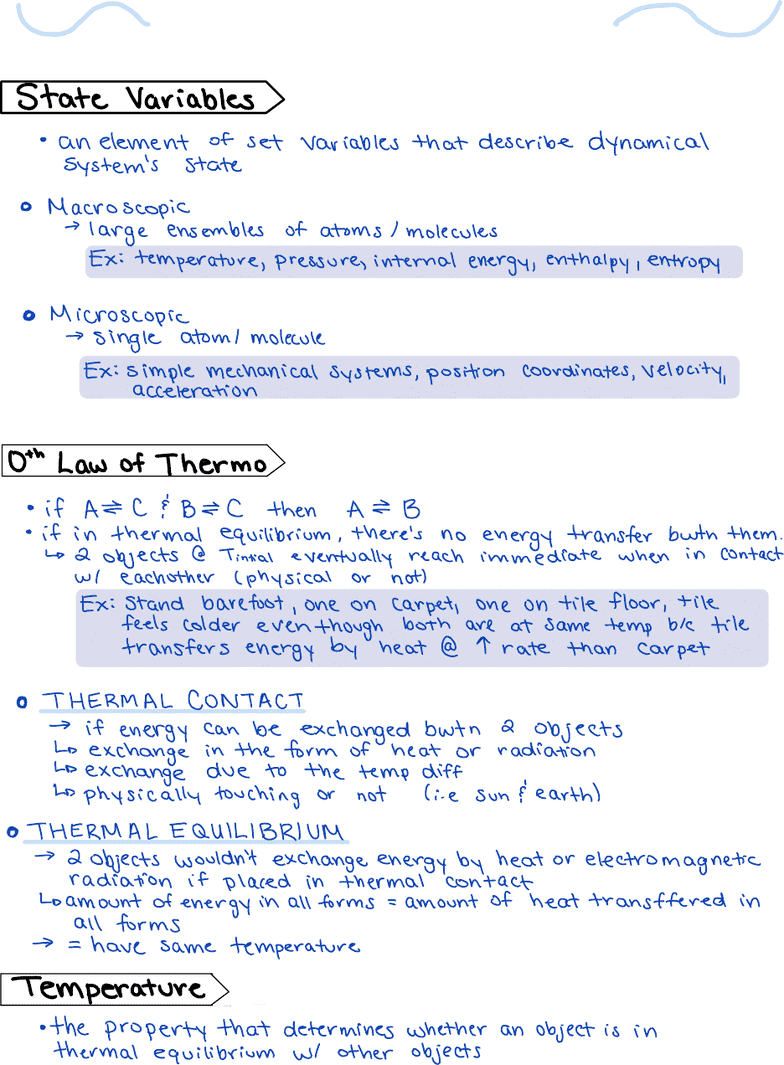 State Variables
• an element of set variables that describe dynamical
system's state
Macroscopic
→ large ensembles of atoms / molecules
Ex: temperature, pressure, internal energy, enthalpy, entropy
Microscopic
→ single atom / molecule
Ex: simple mechanical systems, position coordinates, velocity,
acceleration
0th Law of Thermo
• if A ⇌ C & B ⇌ C then A ⇌ B
• if in thermal equilibrium, there's no energy transfer bwtn them.
↳ 2 objects @ Tinitial eventually reach immediate when in contact
w/ eachother (physical or not)
Ex: Stand barefoot, one on carpet, one on tile floor, tile
feels colder eventhough both are at same temp b/c tile
transfers energy by heat @ ↑ rate than carpet
THERMAL CONTACT
→ if energy can be exchanged bwtn 2 objects
↳ exchange in the form of heat or radiation
↳ exchange due to the temp diff
↳ physically touching or not (i.e sun & earth)
THERMAL EQUILIBRIUM
→ 2 objects wouldn't exchange energy by heat or electromagnetic
radiation if placed in thermal contact
↳ amount of energy in all forms = amount of heat transffered in
all forms
→ = have same temperature
Temperature
• the property that determines whether an object is in
thermal equilibrium w/ other objects